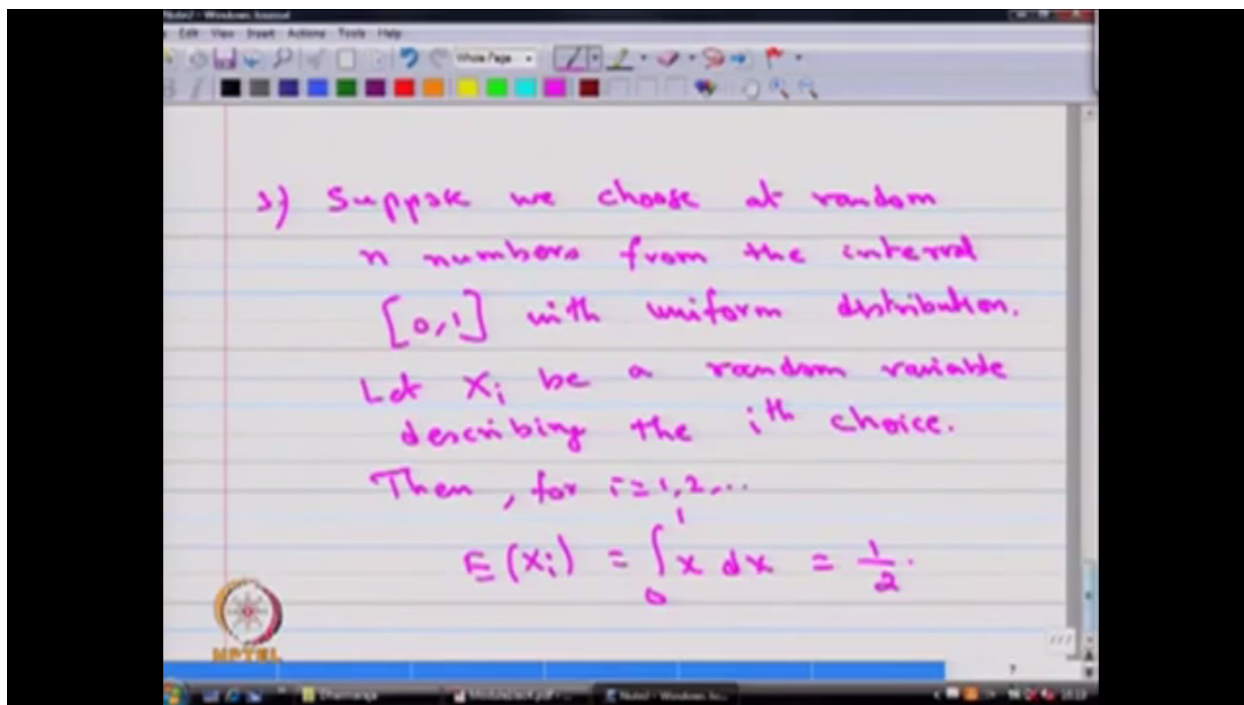 Note2 - Windows Journal
Edit View Insert Actions Tools Help
Whole Page
3) Suppose we choose at random
n numbers from the interval
[0,1] with uniform distribution.
Let Xi be a random variable
describing the ith choice.
Then, for i=1,2,...
E(Xi) = ∫₀¹ x dx = 1/2.
NPTEL
Dharmaraja